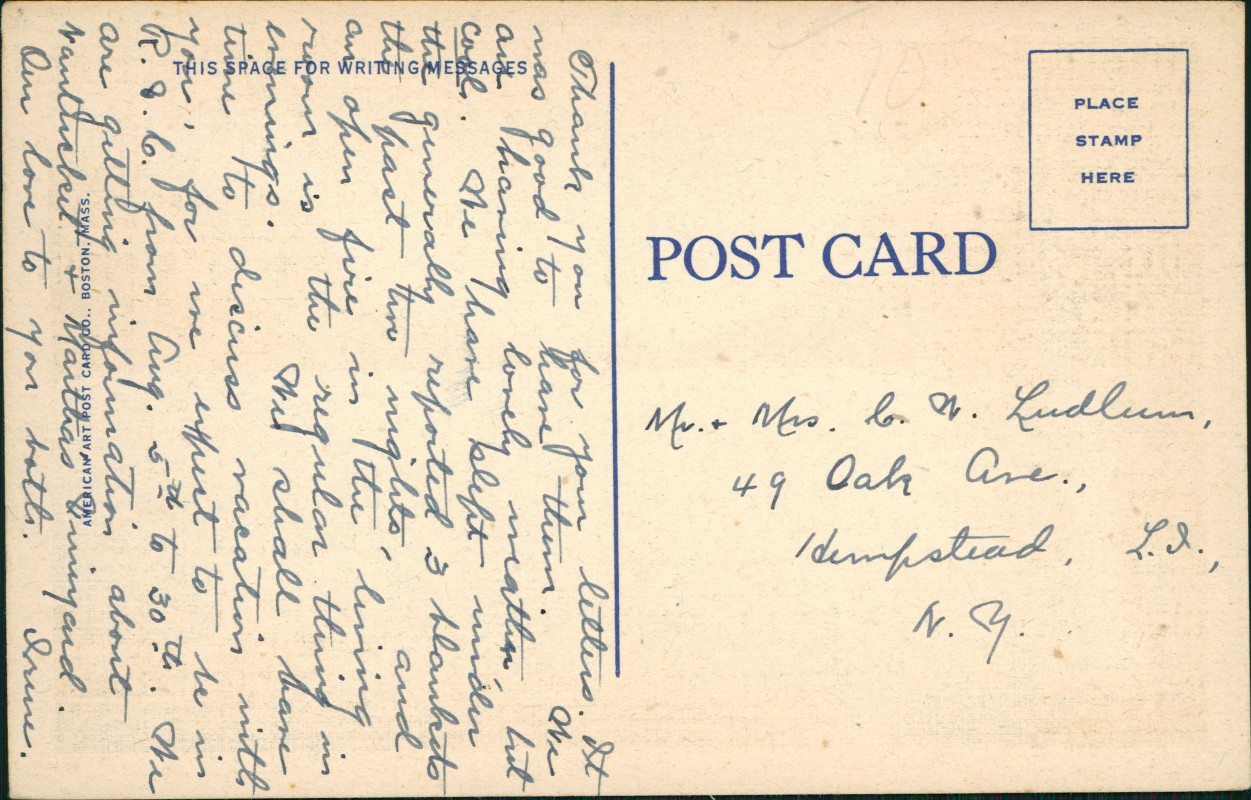 THIS SPACE FOR WRITING MESSAGES
Thank you for your letters. It
was good to have them. We
are having lovely weather but
cool. We have slept under
the generally reported 3 blankets
the past two nights, and
an open fire in the living
room is the regular thing in
evenings. We shall have
time to discuss vacation with
you, for we expect to be in
R. I. C. from Aug. 5th to 30th. We
are getting information about
Nantucket + Marthas Vinyard.
Our love to you both. Irene.
AMERICAN ART POST CARD CO., BOSTON, MASS.
PLACE
STAMP
HERE
POST CARD
Mr. + Mrs. C. W. Ludlum,
49 Oak Ave.,
Hempstead, L.I.,
N. Y.